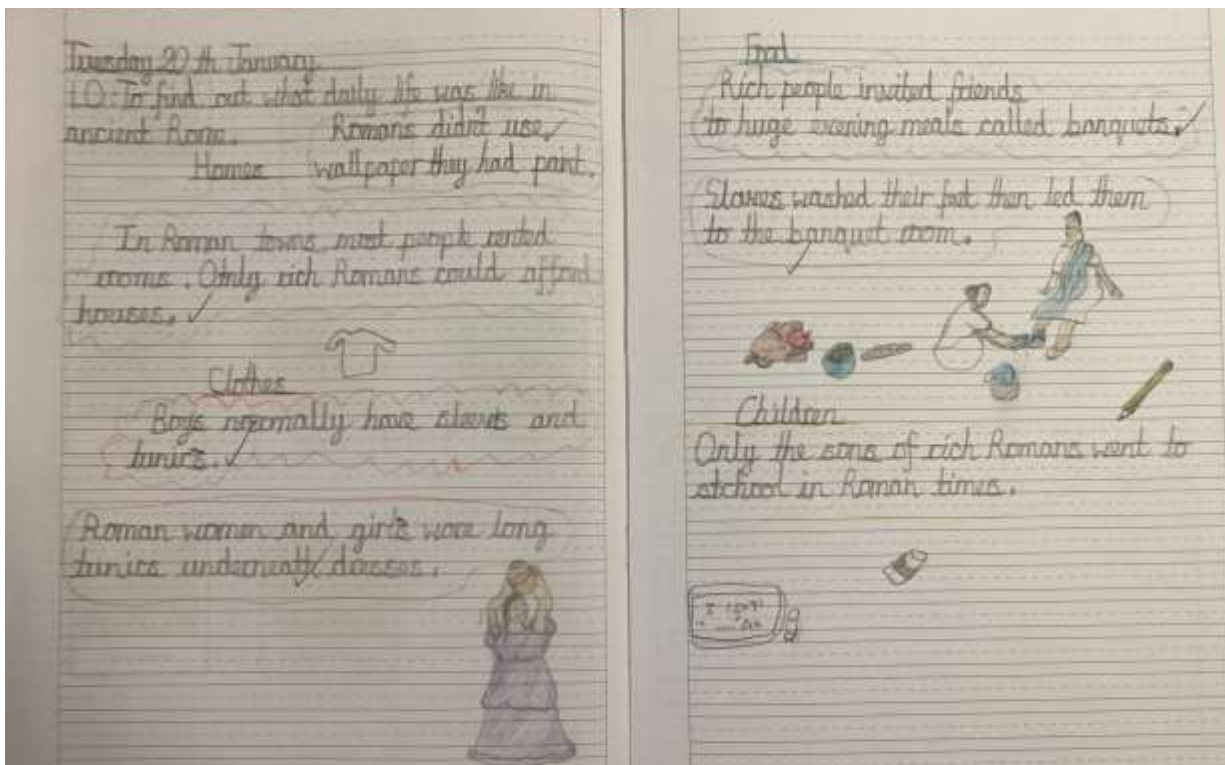 Tuesday 20th January
LO: To find out what daily life was like in
ancient Rome.
Romans didn't use
wallpaper they had paint.
Homes
In Roman towns, most people rented
rooms. Only rich Romans could afford
houses.
Clothes
Boys normally have sleevs and
tunics.
Roman women and girls wore long
tunics underneath dresses.
Food
Rich people invited friends
to huge evening meals called banquets.
Slaves washed their feet then led them
to the banquet room.
Children
Only the sons of rich Romans went to
stchool in Roman times.